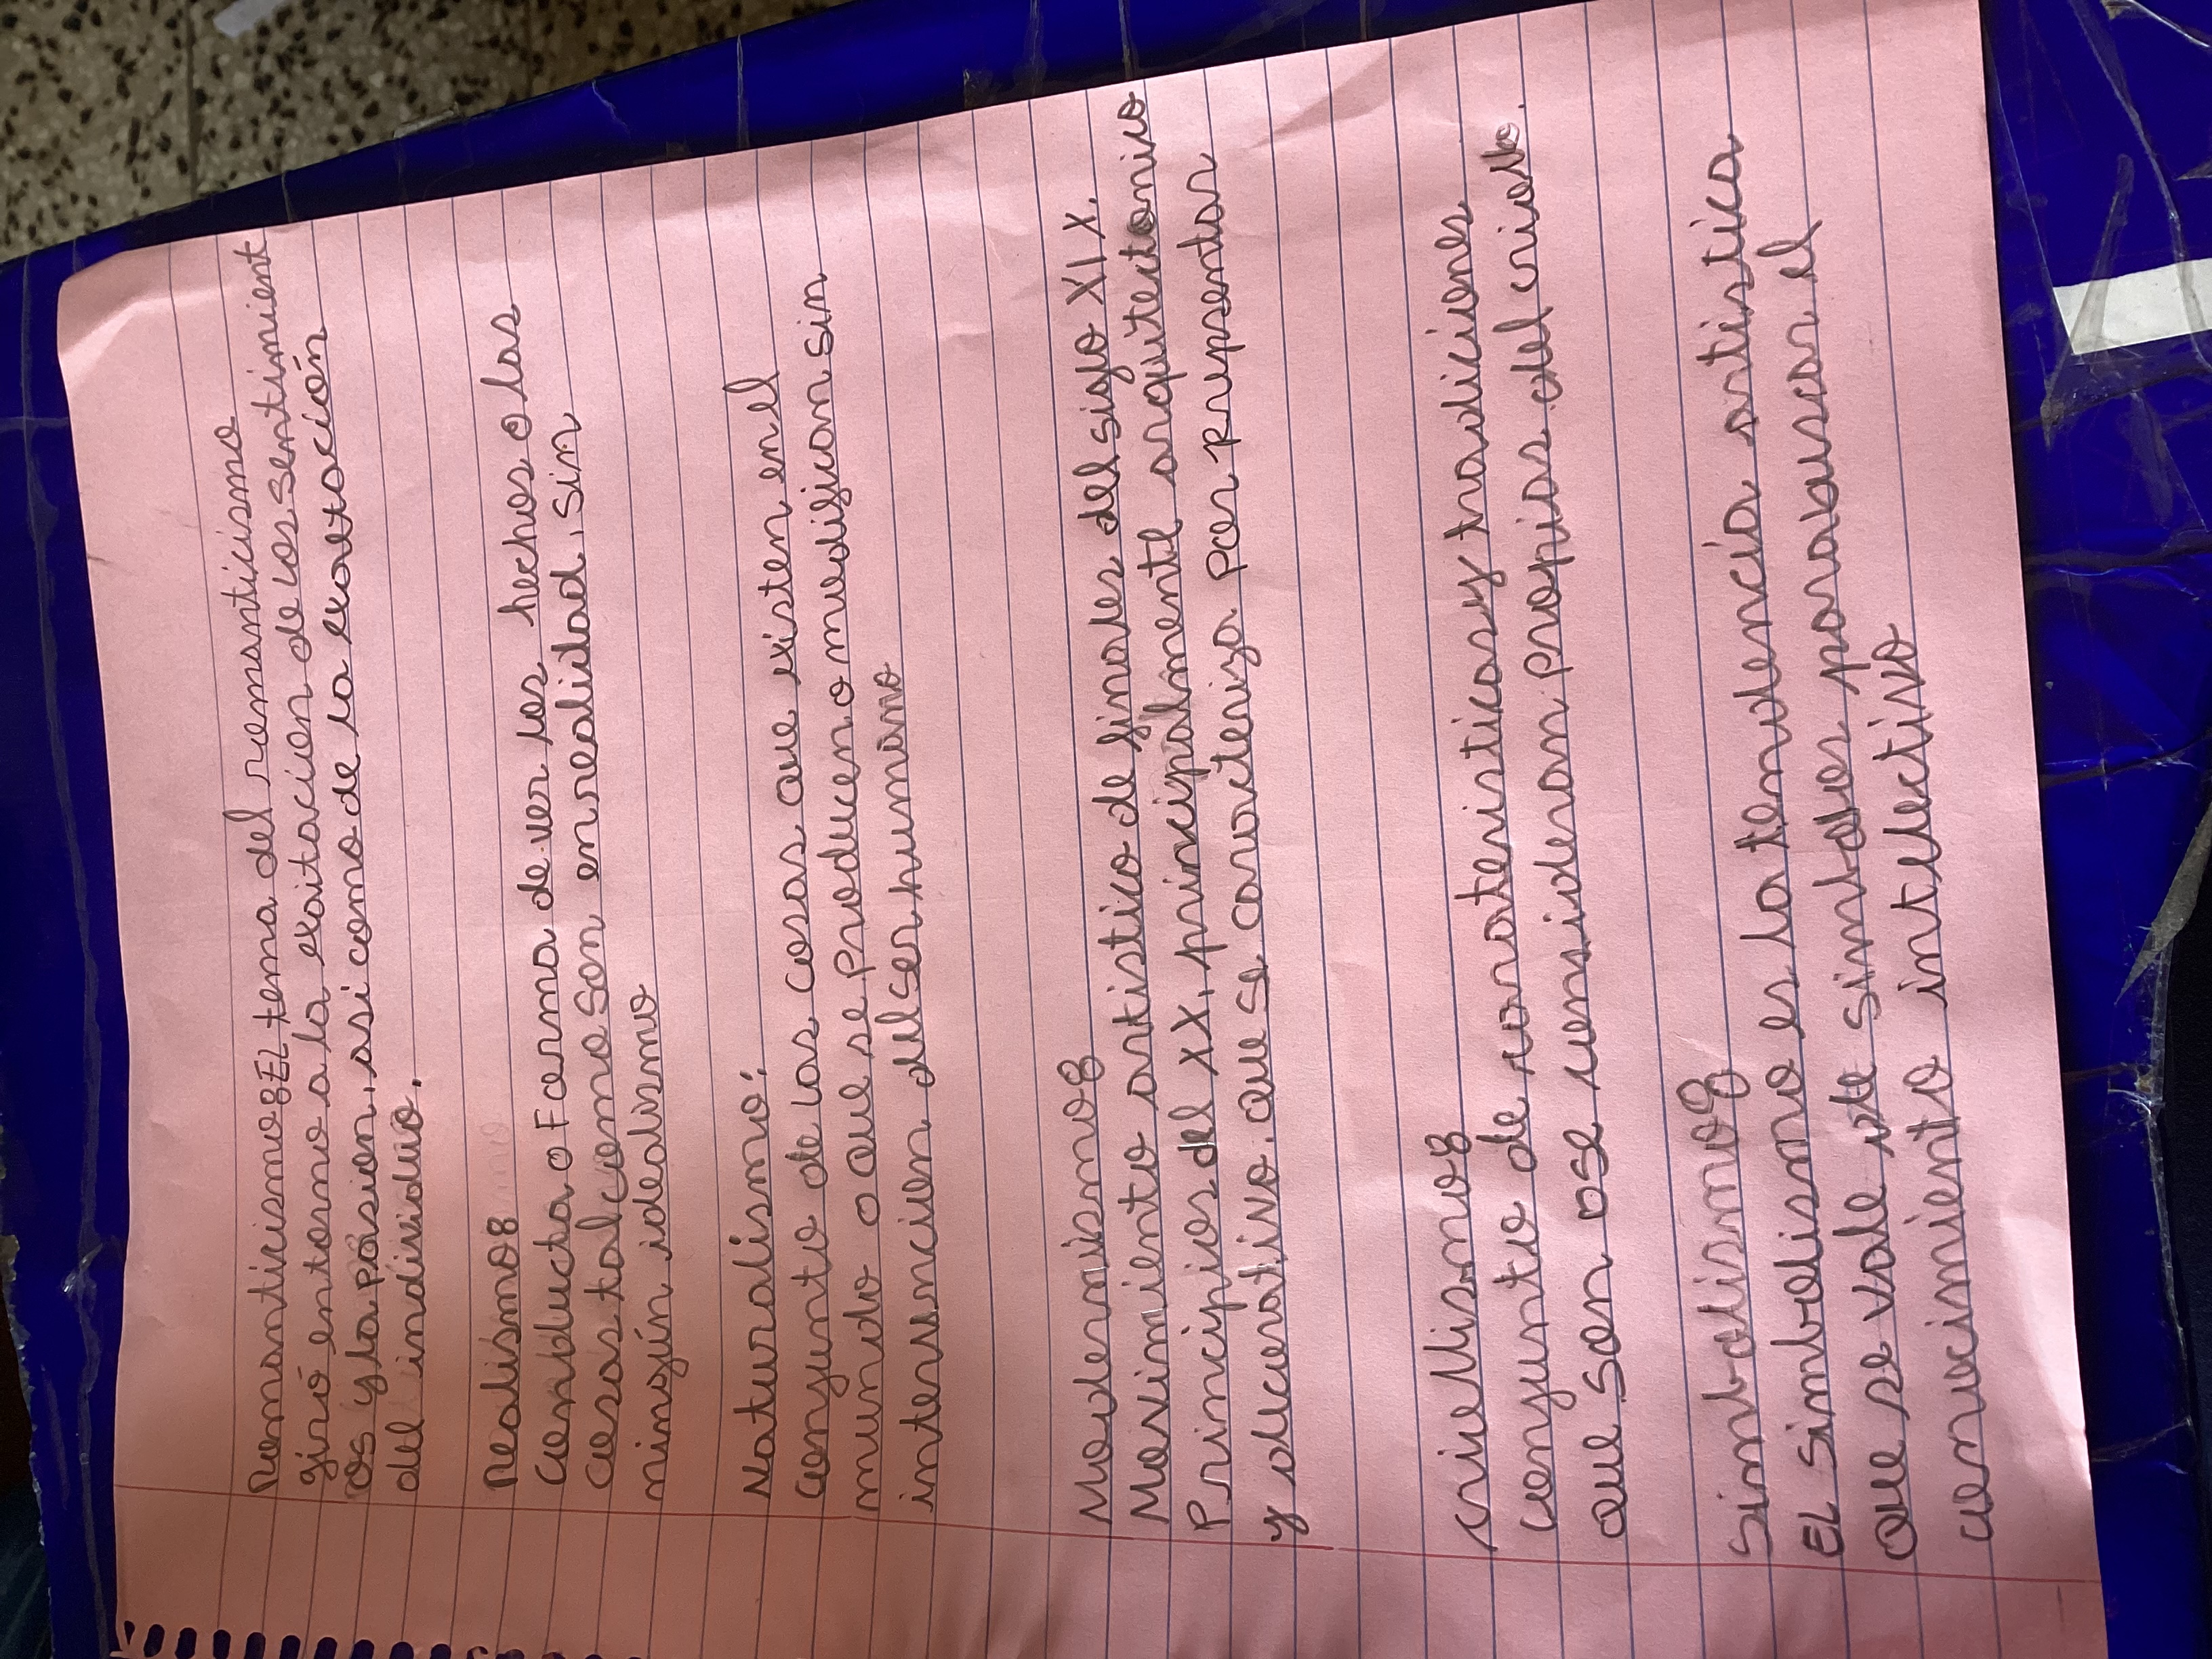 Romanticismo: EL tema del romanticismo
giró entorno a la exaltacion de los sentimient
os y la pasion, asi como de la exaltación
del individuo.
Realismo:
Conducta o Forma de ver los hechos o las
cosas tal como son en realidad, sin
ningún idealismo
Naturalismo:
Conjunto de las cosas que existen en el
mundo o que se Producen o modifican sin
intervencion del ser humano
Modernismo:
Movimiento artistico de finales del siglo XIX.
Principios del XX, principalmente arquitectonico
y decorativo. que se caracteriza Por representar
criollismo:
conjunto de caracteristicas y tradiciones
que son o se consideran propias del criollo.
Simbolismo:
EL Simbolismo es la tendencia artistica
que se vale de simbolos para buscar el
conocimiento intelectivo